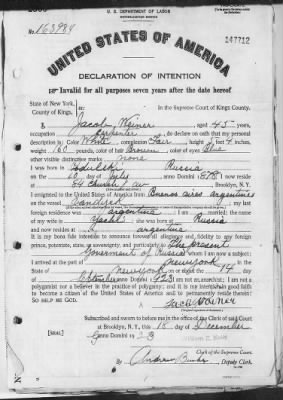 U. S. DEPARTMENT OF LABOR
NATURALIZATION SERVICE
No. 163989
147712
UNITED STATES OF AMERICA
DECLARATION OF INTENTION
Invalid for all purposes seven years after the date hereof
State of New York,
County of Kings,
In the Supreme Court of Kings County.
I, Jacob Weiner aged 45 years,
occupation Carpenter, do declare on oath that my personal
description is: Color White, complexion Fair, height 5 feet 4 inches,
weight 160 pounds, color of hair Brown, color of eyes Blue
other visible distinctive marks none
I was born in Russia
on the 10 day of July, anno Domini 1878; I now reside
at 84 Church av Brooklyn, N. Y.
I emigrated to the United States of America from Buenos aires argentina
on the vessel Vandyck; my last
foreign residence was argentina. I am married; the name
of my wife is; she was born at Russia
and now resides at argentina
It is my bona fide intention to renounce forever all allegiance and fidelity to any foreign
prince, potentate, state, or sovereignty, and particularly to The present
Government of Russia of whom I am now a subject;
I arrived at the port of Newyork, in the
State of Newyork, on or about the 14 day
of October, anno Domini 1923; I am not an anarchist; I am not a
polygamist nor a believer in the practice of polygamy; and it is my intention in good faith
to become a citizen of the United States of America and to permanently reside therein:
SO HELP ME GOD.
Subscribed and sworn to before me in the office of the Clerk of said Court
at Brooklyn, N. Y., this 18 day of December
[SEAL]
anno Domini 1923
Clerk of the Supreme Court.
By, Deputy Clerk.